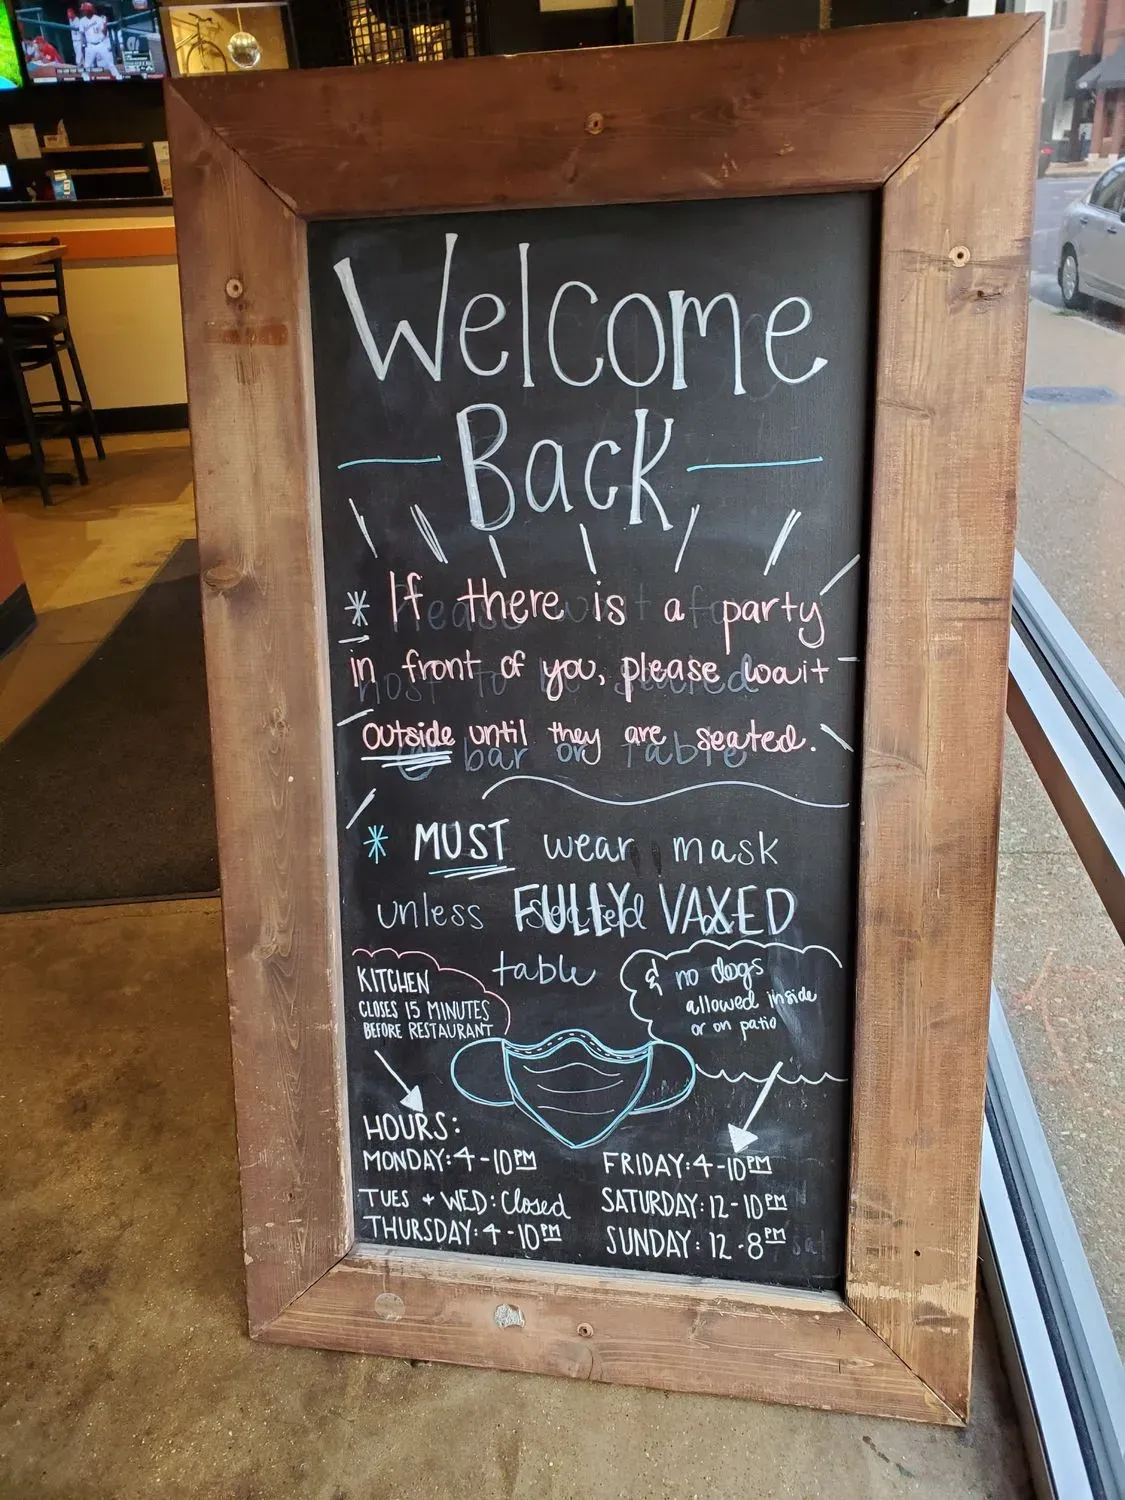 Welcome
Back
* If there is a party
in front of you, please wait
outside until they are seated.
* MUST wear mask
unless FULLY VAXED
table
KITCHEN
CLOSES 15 MINUTES
BEFORE RESTAURANT
& no dogs
allowed inside
or on patio
HOURS:
MONDAY: 4-10PM
TUES + WED: Closed
THURSDAY: 4-10PM
FRIDAY: 4-10PM
SATURDAY: 12-10PM
SUNDAY: 12-8PM